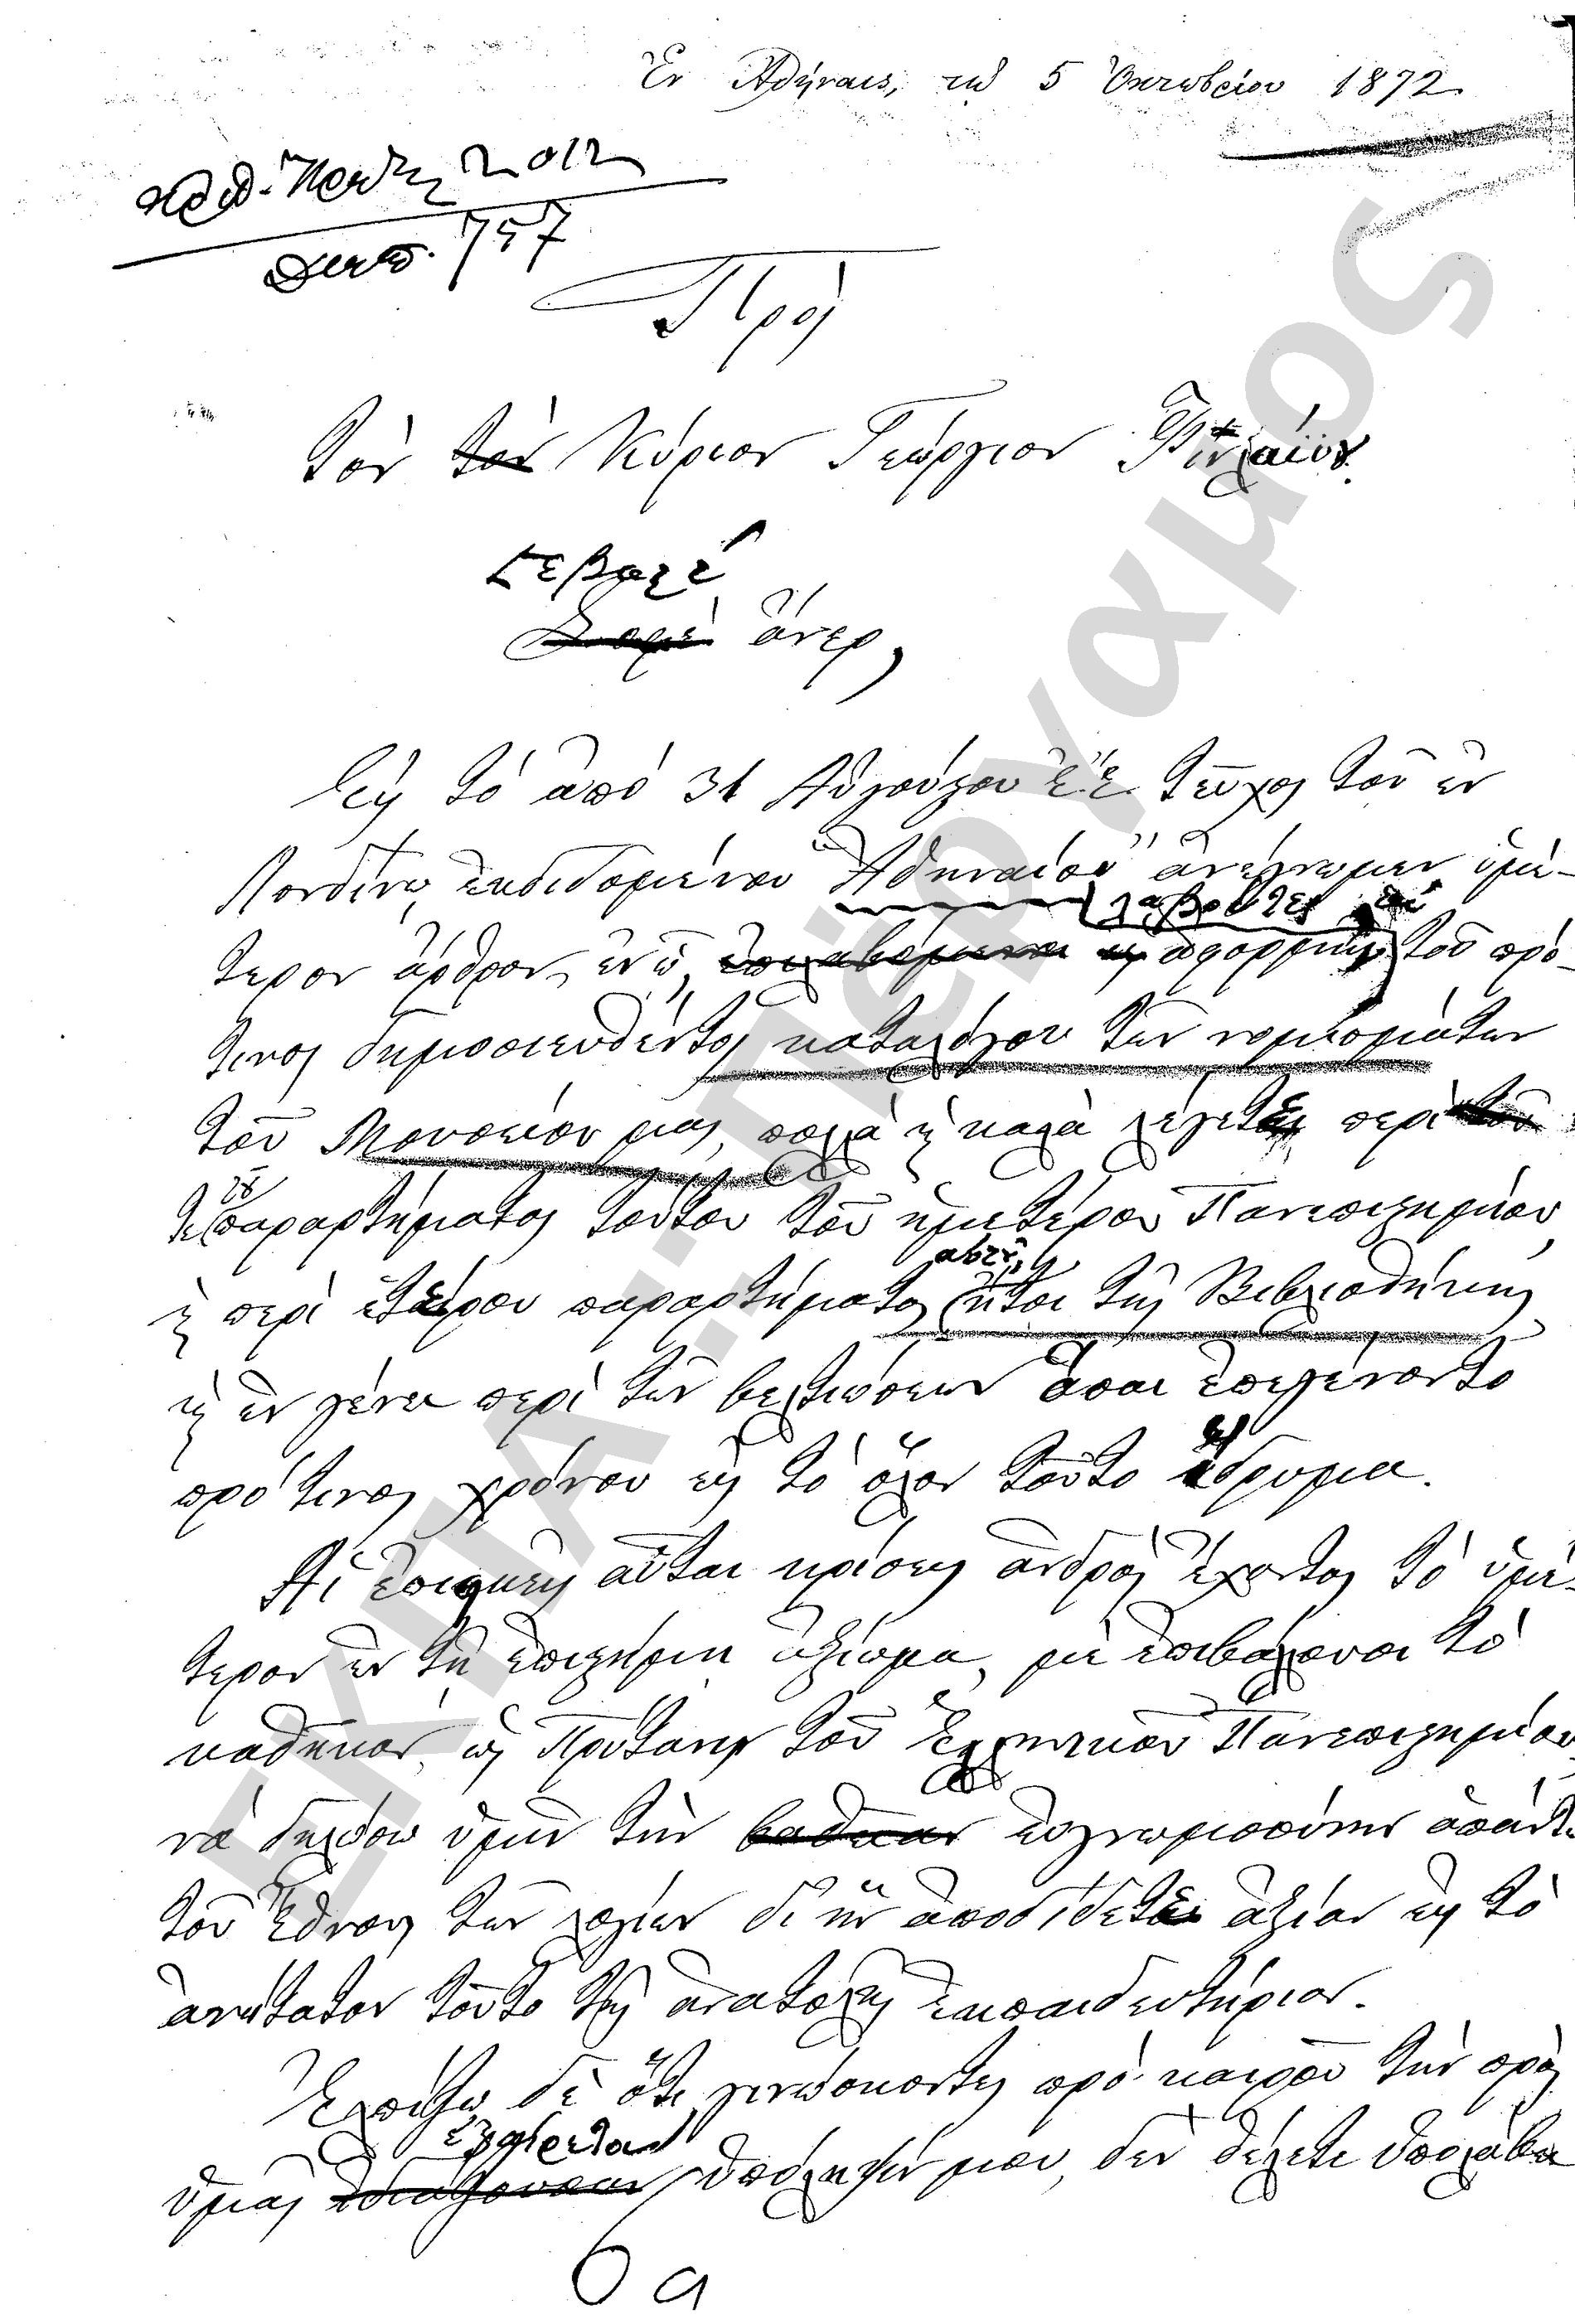 Ἐν Ἀθήναις, τῇ 5 Ὀκτωβρίου 1872.
2012
757
Πρὸς
Τὸν τὸν Κύριον Γεώργιον Φίνλαϋν.
Σεβαστὲ
Σοφὲ ἄνερ,
Εἰς τὸ ἀπὸ 31 Αὐγούστου ἔ.ἔ. τεῦχος τοῦ ἐν
Λονδίνῳ ἐκδιδομένου "Ἀθηναίου" ἀνέγνωμεν ὑμέ-
λαβόντες
τερον ἄρθρον, ἐν ᾧ, ἀφορμὴν τοῦ πρό
τινος δημοσιευθέντος καταλόγου τῶν νομισμάτων
τοῦ Μουσείου μας, πολλὰ ϗ καλὰ λέγετε περὶ τοῦ
τε παραρτήματος τούτου τοῦ ἡμετέρου Πανεπιστημίου,
αὐτοῦ,
ϗ περὶ ἑτέρου παραρτήματος ἤτοι τῆς Βιβλιοθήκης,
ϗ ἐν γένει περὶ τῶν βελτιώσεων ὅσαι ἐπεγένοντο
πρό τινος χρόνου εἰς τὸ ὅλον τοῦτο ἵδρυμα.
Αἱ ἐπιεικεῖς αὗται κρίσεις ἀνδρὸς ἔχοντος τὸ ὑμέ-
τερον ἐν τῇ ἐπιστήμῃ ἀξίωμα, μὲ ἐπιβάλλουσι τὸ
καθῆκον, ὡς Πρύτανιν τοῦ Ἑλληνικοῦ Πανεπιστημίου,
νὰ δηλώσω ὑμῖν τὴν βαθεῖαν εὐγνωμοσύνην ἅπαντος
τοῦ Ἔθνους τῶν λογίων δι' ἣν ἀποδίδετε ἀξίαν εἰς τὸ
ἀνώτατον τοῦτο τῆς ἀνατολῆς ἐκπαιδευτήριον.
Ἐλπίζω δὲ ὅτι γινώσκοντες πρὸ καιροῦ τὴν πρὸς
ἐξαίρετον
ὑμᾶς ἰδιάζουσαν ὑπόληψίν μου, δὲν θέλετε ὑπολάβει
6α
ΕΚΠΑ - Πέργαμος